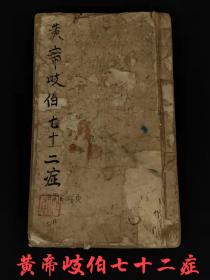 黄帝岐伯七十二症
黄帝岐伯七十二症